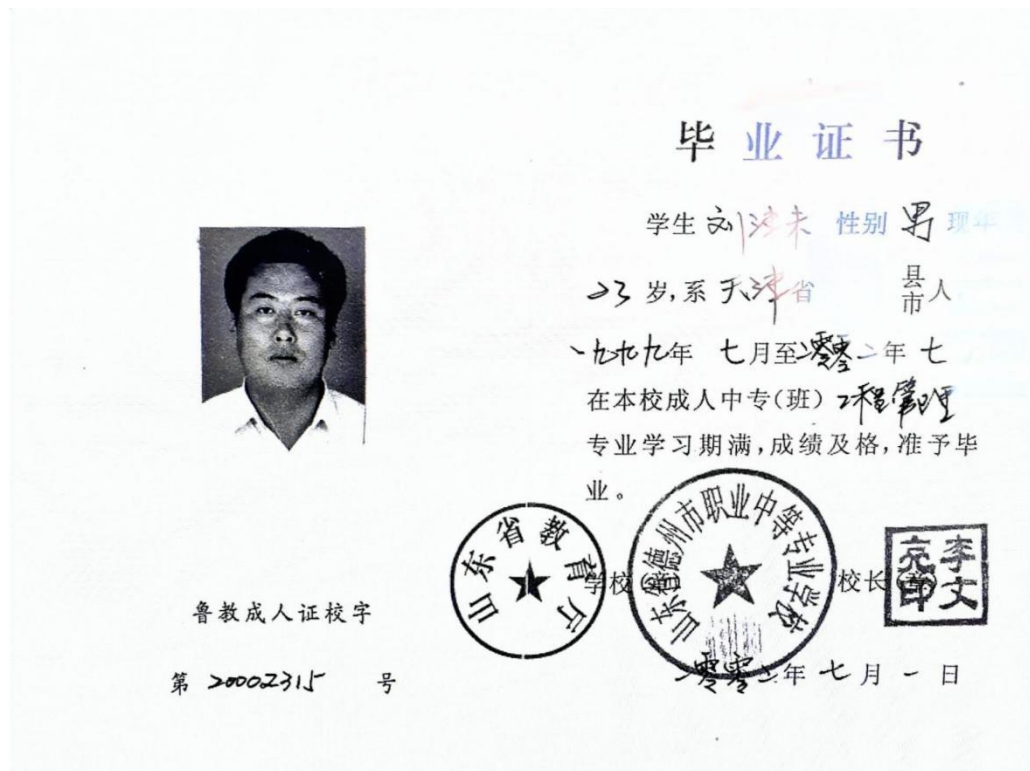 毕业证书
学生 刘津来 性别 男 现年
23 岁,系 天津省 县市人
一九九九年 七月至二零零二年 七
在本校成人中专(班) 工程管理
专业学习期满,成绩及格,准予毕
业。
山东省教育厅
山东省德州市职业中等专业学校
学校 校长(章)
李文亮印
二零零二年 七 月 一 日
鲁教成人证校字
第 20002315 号